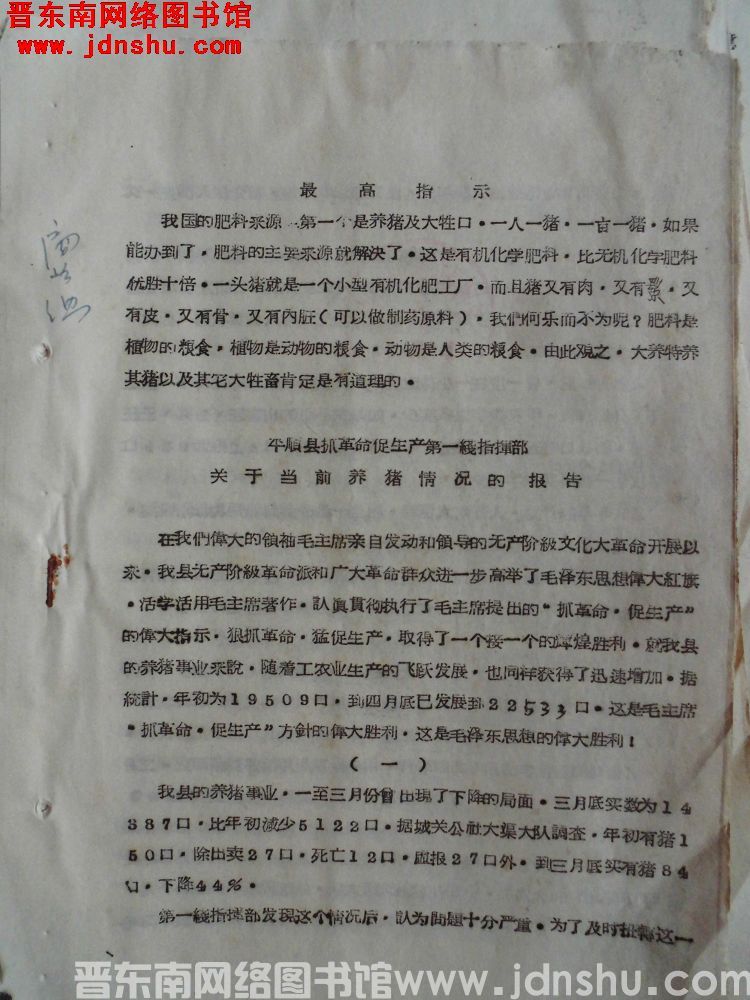 晋东南网络图书馆
www.jdnshu.com
最高指示
我国的肥料来源．第一个是养猪及大牲口．一人一猪．一亩一猪．如果
能办到了．肥料的主要来源就解决了．这是有机化学肥料．比无机化学肥料
优胜十倍．一头猪就是一个小型有机化肥工厂．而且猪又有肉．又有鬃．又
有皮．又有骨．又有内脏（可以做制药原料）．我们何乐而不为呢？肥料是
植物的粮食．植物是动物的粮食．动物是人类的粮食．由此观之．大养特养
其猪以及其它大牲畜肯定是有道理的．
平顺县抓革命促生产第一綫指揮部
关于当前养猪情况的报告
在我們偉大的領袖毛主席亲自发动和領导的无产阶級文化大革命开展以
来．我县无产阶級革命派和广大革命群众进一步高举了毛泽东思想偉大紅旗
．活学活用毛主席著作．認眞貫彻执行了毛主席提出的“抓革命．促生产”
的偉大指示．狠抓革命．猛促生产．取得了一个接一个的辉煌胜利．就我县
的养猪事业来說．随着工农业生产的飞跃发展．也同样获得了迅速增加．据
統計．年初为19509口．到四月底已发展到22533口．这是毛主席
“抓革命．促生产”方針的偉大胜利．这是毛泽东思想的偉大胜利！
（一）
我县的养猪事业．一至三月份曾出現了下降的局面．三月底实数为14
387口．比年初减少5122口．据城关公社大渠大队調查．年初有猪1
50口．除出卖27口．死亡12口．虛报27口外．到三月底实有猪84
口．下降44%．
第一綫指揮部发現这个情况后．認为問題十分严重．为了及时扭轉这一
晋东南网络图书馆www.jdnshu.com